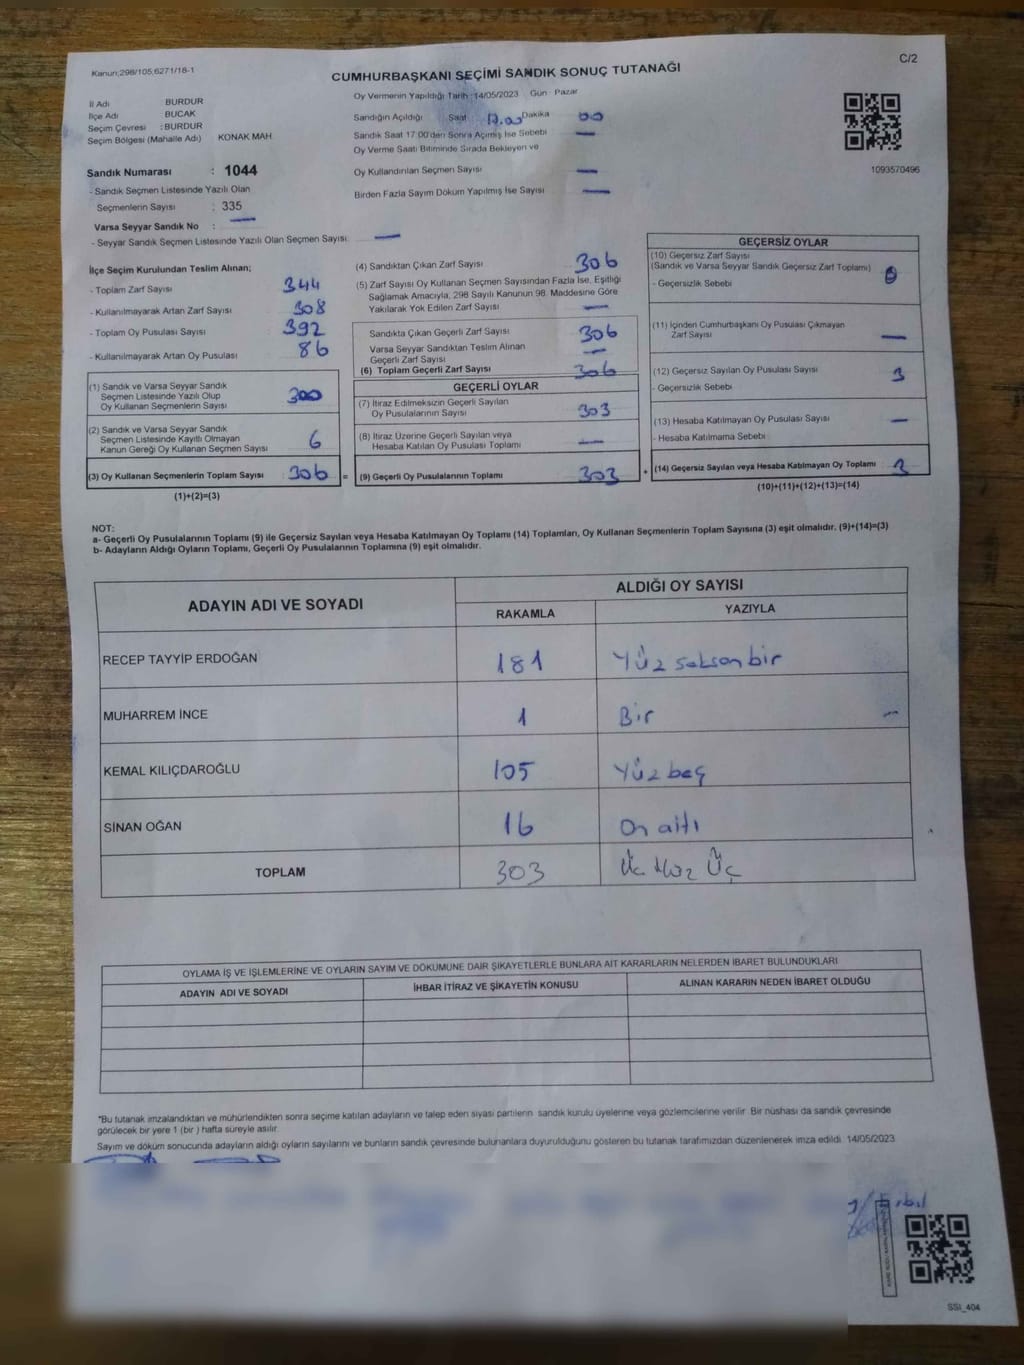 Kanun;298/105,6271/18-1
C/2
CUMHURBAŞKANI SEÇİMİ SANDIK SONUÇ TUTANAĞI
İl Adı BURDUR
İlçe Adı BUCAK
Seçim Çevresi : BURDUR
Seçim Bölgesi (Mahalle Adı) KONAK MAH.
Sandık Numarası : 1044
- Sandık Seçmen Listesinde Yazılı Olan
Seçmenlerin Sayısı : 335
Varsa Seyyar Sandık No : —
- Seyyar Sandık Seçmen Listesinde Yazılı Olan Seçmen Sayısı: —
Oy Vermenin Yapıldığı Tarih :14/05/2023 Gün : Pazar
Sandığın Açıldığı Saat 17.00 Dakika 00
Sandık Saat 17:00'den Sonra Açılmış İse Sebebi —
Oy Verme Saati Bitiminde Sırada Bekleyen ve
Oy Kullandırılan Seçmen Sayısı —
Birden Fazla Sayım Döküm Yapılmış İse Sayısı —
1093570496
İlçe Seçim Kurulundan Teslim Alınan;
- Toplam Zarf Sayısı : 344
- Kullanılmayarak Artan Zarf Sayısı : 308
- Toplam Oy Pusulası Sayısı : 392
- Kullanılmayarak Artan Oy Pusulası : 86
(1) Sandık ve Varsa Seyyar Sandık
Seçmen Listesinde Yazılı Olup
Oy Kullanan Seçmenlerin Sayısı : 300
(2) Sandık ve Varsa Seyyar Sandık
Seçmen Listesinde Kayıtlı Olmayan
Kanun Gereği Oy Kullanan Seçmen Sayısı : 6
(3) Oy Kullanan Seçmenlerin Toplam Sayısı : 306 =
(1)+(2)=(3)
(4) Sandıktan Çıkan Zarf Sayısı : 306
(5) Zarf Sayısı Oy Kullanan Seçmen Sayısından Fazla İse, Eşitliği
Sağlamak Amacıyla, 298 Sayılı Kanunun 98. Maddesine Göre
Yakılarak Yok Edilen Zarf Sayısı : —
Sandıkta Çıkan Geçerli Zarf Sayısı : 306
Varsa Seyyar Sandıktan Teslim Alınan
Geçerli Zarf Sayısı : —
(6) Toplam Geçerli Zarf Sayısı : 306
GEÇERLİ OYLAR
(7) İtiraz Edilmeksizin Geçerli Sayılan
Oy Pusulalarının Sayısı : 303
(8) İtiraz Üzerine Geçerli Sayılan veya
Hesaba Katılan Oy Pusulası Toplamı : —
(9) Geçerli Oy Pusulalarının Toplamı : 303 +
GEÇERSİZ OYLAR
(10) Geçersiz Zarf Sayısı
(Sandık ve Varsa Seyyar Sandık Geçersiz Zarf Toplamı) : 0
- Geçersizlik Sebebi
(11) İçinden Cumhurbaşkanı Oy Pusulası Çıkmayan
Zarf Sayısı : —
(12) Geçersiz Sayılan Oy Pusulası Sayısı : 3
- Geçersizlik Sebebi
(13) Hesaba Katılmayan Oy Pusulası Sayısı : —
- Hesaba Katılmama Sebebi
(14) Geçersiz Sayılan veya Hesaba Katılmayan Oy Toplamı : 3
(10)+(11)+(12)+(13)=(14)
NOT:
a- Geçerli Oy Pusulalarının Toplamı (9) ile Geçersiz Sayılan veya Hesaba Katılmayan Oy Toplamı (14) Toplamları, Oy Kullanan Seçmenlerin Toplam Sayısına (3) eşit olmalıdır. (9)+(14)=(3)
b- Adayların Aldığı Oyların Toplamı, Geçerli Oy Pusulalarının Toplamına (9) eşit olmalıdır.
ADAYIN ADI VE SOYADI ALDIĞI OY SAYISI
RAKAMLA YAZIYLA
RECEP TAYYİP ERDOĞAN 181 Yüz seksen bir
MUHARREM İNCE 1 Bir —
KEMAL KILIÇDAROĞLU 105 Yüz beş
SİNAN OĞAN 16 On altı
TOPLAM 303 Üç Yüz Üç
OYLAMA İŞ VE İŞLEMLERİNE VE OYLARIN SAYIM VE DÖKÜMÜNE DAİR ŞİKAYETLERLE BUNLARA AİT KARARLARIN NELERDEN İBARET BULUNDUKLARI
ADAYIN ADI VE SOYADI İHBAR İTİRAZ VE ŞİKAYETİN KONUSU ALINAN KARARIN NEDEN İBARET OLDUĞU
*Bu tutanak imzalandıktan ve mühürlendikten sonra seçime katılan adayların ve talep eden siyasi partilerin sandık kurulu üyelerine veya gözlemcilerine verilir. Bir nüshası da sandık çevresinde
görülecek bir yere 1 (bir ) hafta süreyle asılır.
Sayım ve döküm sonucunda adayların aldığı oyların sayılarını ve bunların sandık çevresinde bulunanlara duyurulduğunu gösteren bu tutanak tarafımızdan düzenlenerek imza edildi. 14/05/2023
SSI_404